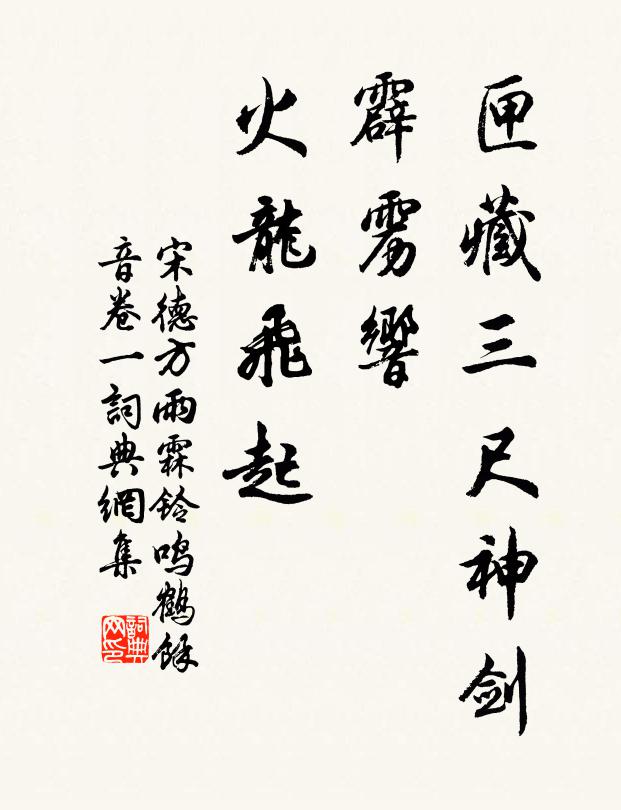 匣藏三尺神剑
霹雳響
火龍飛起
宋德方雨霖鈴鳴鶴餘
音卷一詞典網集
詞典
网印